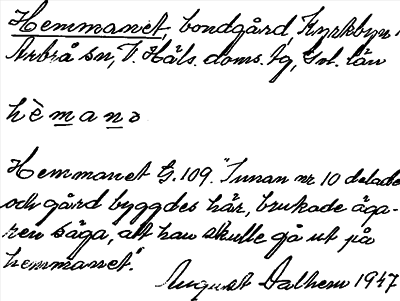 Hemmanet, bondgård, Kyrkbyn,
Arbrå sn, V. Häls. doms. tg, Gvl. län
hèmana
Hemmanet G. 109. "Innan nr 10 delades
och gård byggdes här, brukade äga-
ren säga, att han skulle gå ut på
hemmanet."
August Dalhem 1947